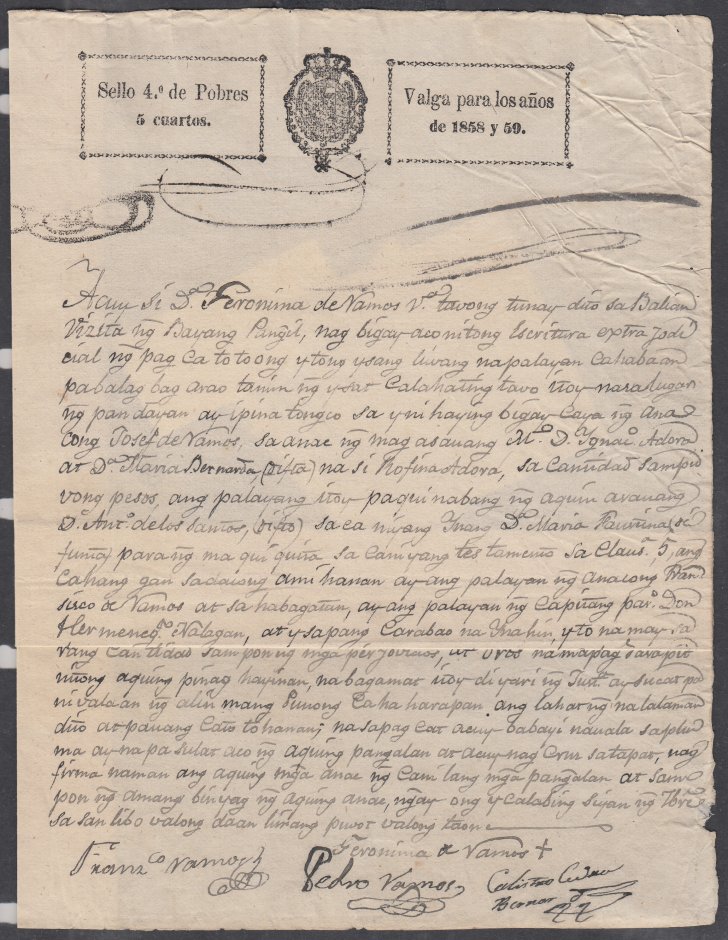 Sello 4.º de Pobres
5 cuartos.
Valga para los años
de 1858 y 59.
Acuy si D.ª Feronima de Vamos V.ª tavong tunay dito sa Balian
Vizita ng Bayang Pangil, nag bigay aco nitong Escritura extra Jodi
cial ng pag ca totoong ytong ysang luwang na palayan cahabaan
pabalagbag arao tanim ng ysat calahating tavo itoy nasa lugar
ng pandayan ay ipina tongco sa yni haying bigay caya ng Ana
cong Josef de Vamos, sa anac ng mag asauang M.º D. Ygnac.º Adora
at D.ª Maria Bernarda (difta) na si Rofina Adora, sa Cantidad sampu
vong pesos, ang palayang itoy paquinabang ng aquin asauang
D. Ant.º de los Santos, (difto) sa ca niyang Ynang D.ª Maria (di
funta) para ng ma qui quita sa caniyang testamento sa Claus.ª 5, ang
cahang gan sa dacong amihanan ay ang palayan ng anacong Fran
sisco de Vamos at sa habagatan, ay ang palayan ng Capitang pas.º Don
Hermeneg.º Nalagan, at ysapang Carabao na Ynahin, yto na may sa
rang Cantidad sam pouong mga pesos, at oros na mapag
nitong aquing pinag hayinan, na bagamat itoy di yari ng Just.ª ay sucat pa
nivalaan ng alin mang Punong Caharapan ang lahat ng nalalaman
dito at pauang Catotohanan; na sapag cat acuy babayi na uala sa plu
ma ay napa sulat aco ng aquing pangalan at acuy nag Cruz sa tapat, nag
firma naman ang aquing mga anac ng canilang mga pangalan at sam
pon ng amang binyag ng aquing anac, ngay ong ycalabing siyan ng 7bre
sa san libo valong daan limang puvot valong taon
Feronima de Vamos +
Franz.co Vamos
Pedro Vamos
Calistro
Bernar